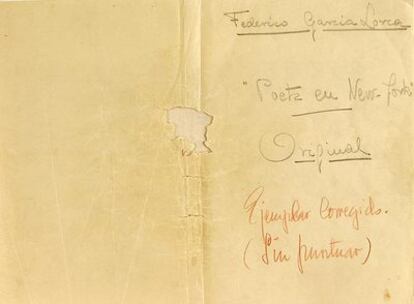 Federico García Lorca
"Poeta en New-York"
Original
Ejemplar corregido.
(Sin puntuar)